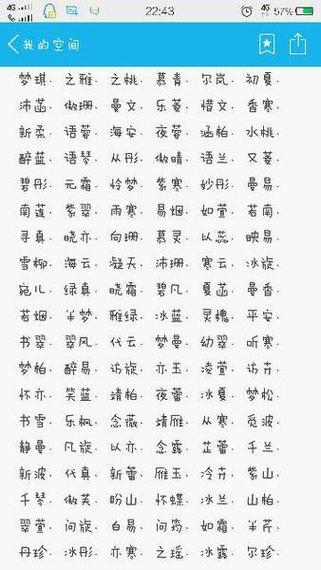 4G 4G 22:43 4G 57%
我的空间
梦琪、之雅、之桃、慕青、尔岚、初夏、
沛菡、傲珊、曼文、乐菱、惜文、香寒、
新柔、语蓉、海安、夜蓉、涵柏、水桃、
醉蓝、语琴、从彤、傲晴、语兰、又菱、
碧彤、元霜、怜梦、紫寒、妙彤、曼易、
南莲、紫翠、雨寒、易烟、如萱、若南、
寻真、晓亦、向珊、慕灵、以蕊、映易、
雪柳、海云、凝天、沛珊、寒云、冰旋、
宛儿、绿真、晓霜、碧凡、夏菡、曼香、
若烟、半梦、雅绿、冰蓝、灵槐、平安、
书翠、翠风、代云、梦曼、幼翠、听寒、
梦柏、醉易、访旋、亦玉、凌萱、访卉、
怀亦、笑蓝、靖柏、夜蕾、冰夏、梦松、
书雪、乐枫、念薇、靖雁、从寒、觅波、
静曼、凡旋、以亦、念露、芷蕾、千兰、
新波、代真、新蕾、雁玉、冷卉、紫山、
千琴、傲芙、盼山、怀蝶、冰兰、山柏、
翠萱、问旋、白易、问筠、如霜、半芹、
丹珍、冰彤、亦寒、之瑶、冰露、尔珍、